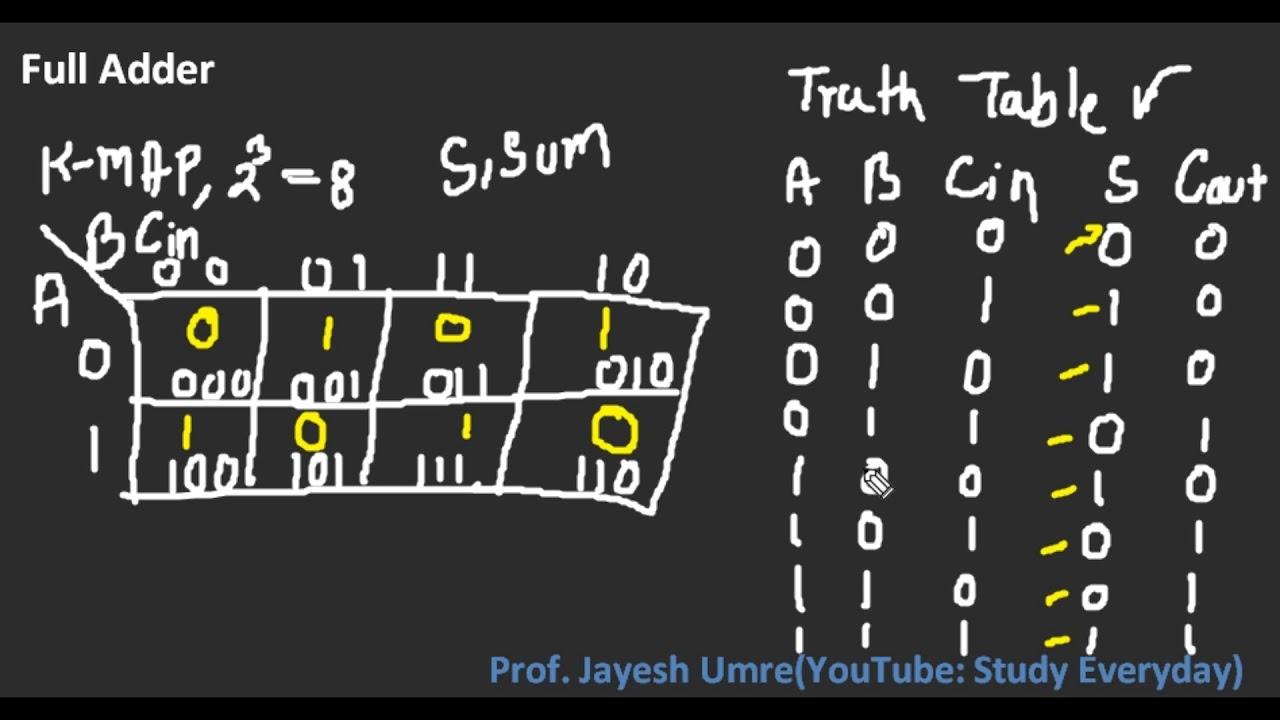 Full Adder
K-MAP, 2³ = 8 S, Sum
B Cin
A 00 01 11 10
0 0 1 0 1
000 001 011 010
1 1 0 1 0
100 101 111 110
Truth Table ✓
A B Cin S Cout
0 0 0 0 0
0 0 1 1 0
0 1 0 1 0
0 1 1 0 1
1 0 0 1 0
1 0 1 0 1
1 1 0 0 1
1 1 1 1 1
Prof. Jayesh Umre(YouTube: Study Everyday)